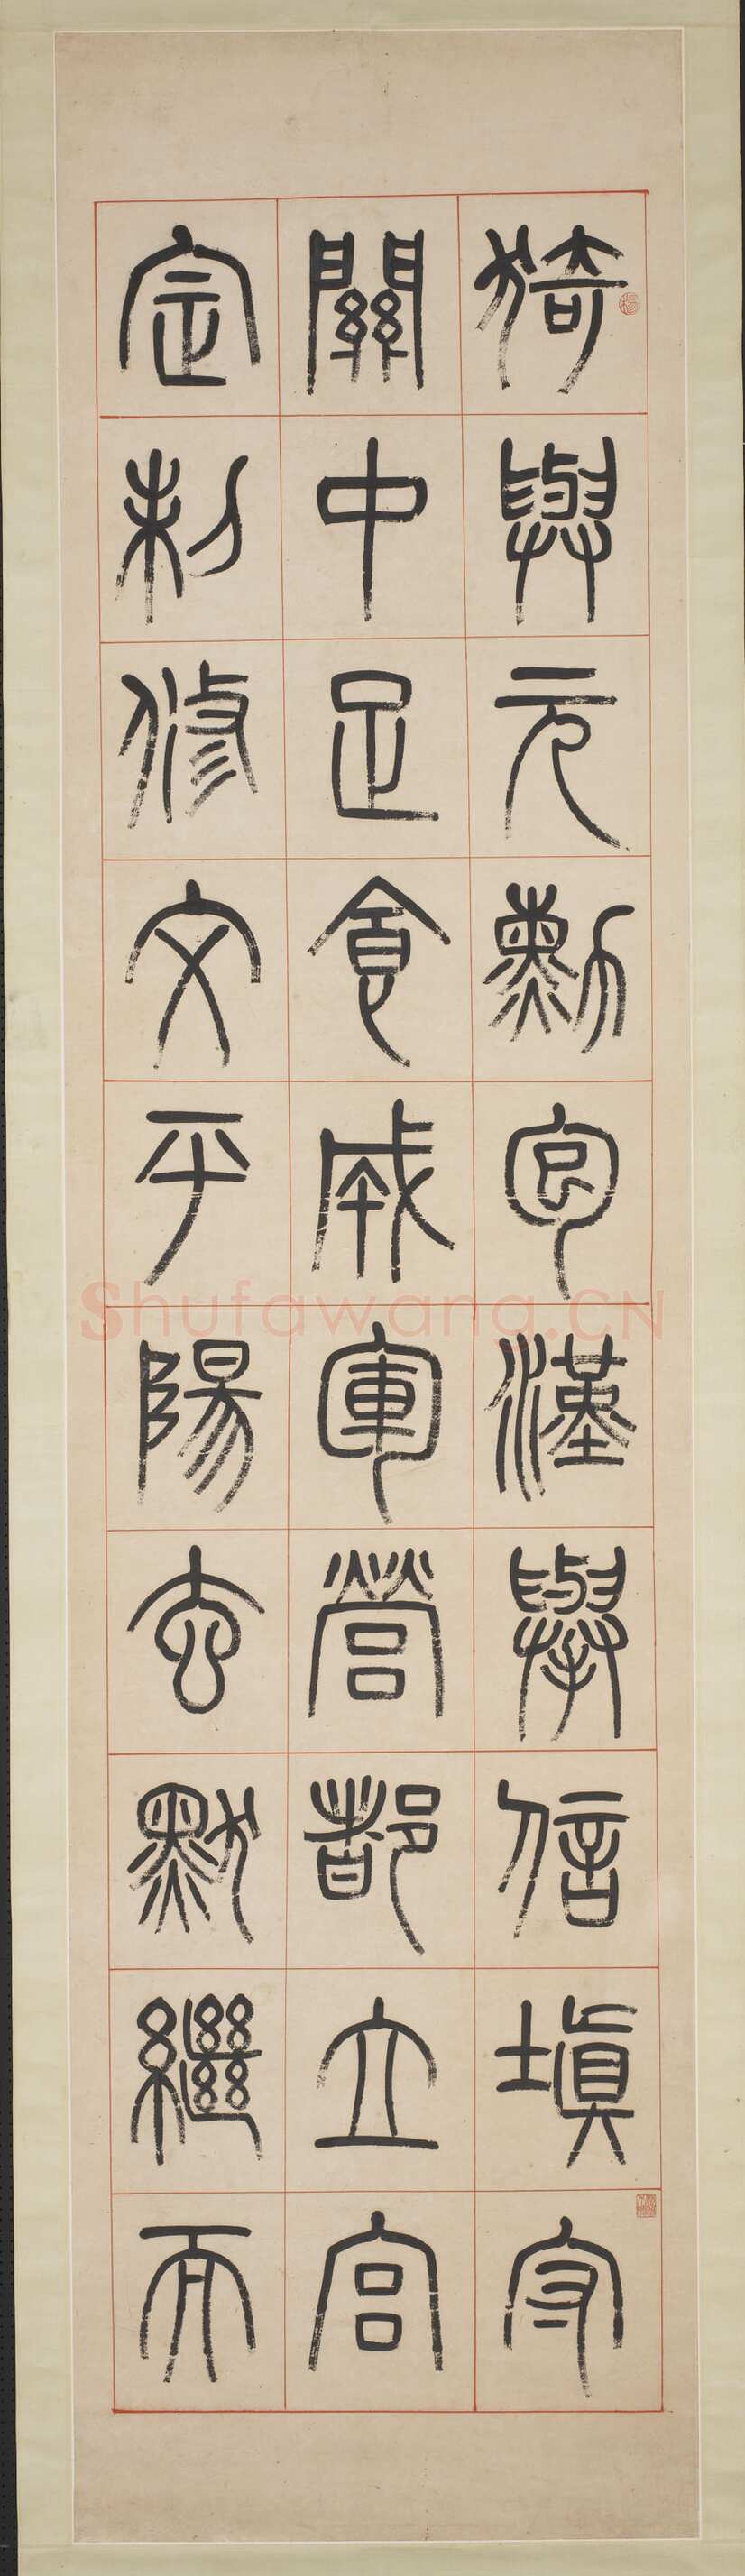 猗與元勳包漢舉信填守
關中足食成軍營都立宮
定制修文平陽玄默繼而
Shufawang.CN